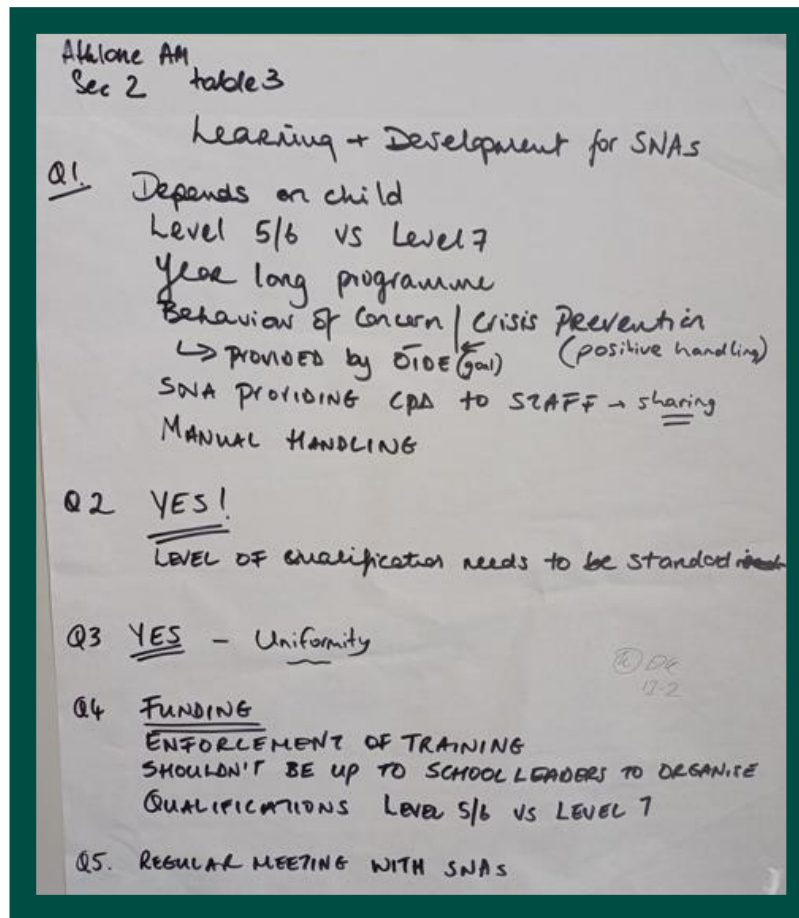 Athlone AM
Sec 2 table 3
Learning + Development for SNAs
Q1. Depends on child
Level 5/6 vs Level 7
Year long programme
Behaviour of Concern / Crisis Prevention
↳ PROVIDED by OIDE (goal) (positive handling)
SNA PROVIDING CPD to STAFF → sharing
MANUAL HANDLING
Q2 YES!
LEVEL OF qualification needs to be standard
Q3 YES - Uniformity
Q4 FUNDING
ENFORCEMENT OF TRAINING
SHOULDN'T BE UP TO SCHOOL LEADERS TO ORGANISE
QUALIFICATIONS LEVEL 5/6 VS LEVEL 7
Q5. REGULAR MEETING WITH SNAs